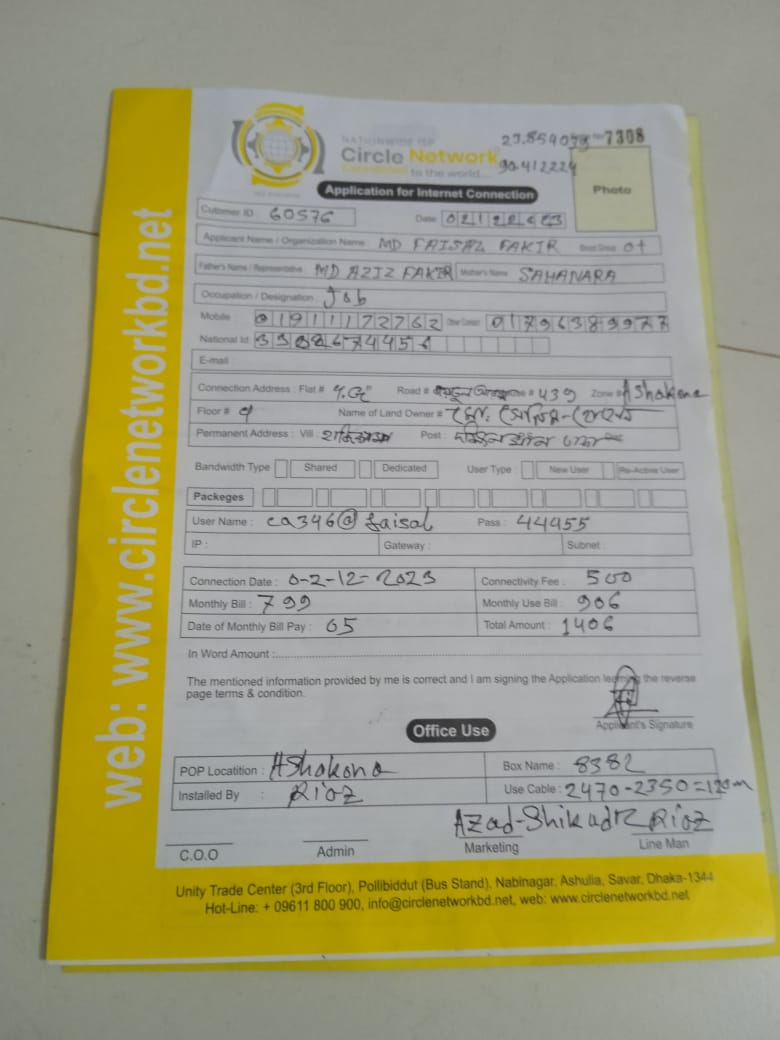 web: www.circlenetworkbd.net
NATIONWIDE ISP
Circle Network
to the world....
23.859079 7308
90.412224
Photo
Application for Internet Connection
Cutomer ID : 60576 Date :
Applicant Name / Organization Name : MD FAISAL FAKIR O+
Father's Name / Representative : MD AZIZ FAKIR Mother's Name : SAHANARA
Occupation / Designation : Job
Mobile 01911172762 01796389977
National Id :
E-mail :
Connection Address : Flat # Road # 439 Zone # AShakona
Floor # Name of Land Owner #
Permanent Address : Vill : Post :
Bandwidth Type Shared Dedicated User Type New User Re-Active User
Packeges
User Name : ca346@faisal Pass : 44955
IP : Gateway : Subnet :
Connection Date : 0-2-12-2023 Connectivity Fee : 500
Monthly Bill : 799 Monthly Use Bill : 906
Date of Monthly Bill Pay : 05 Total Amount : 1406
In Word Amount :
The mentioned information provided by me is correct and I am signing the Application the reverse
page terms & condition.
Applicant's Signature
Office Use
POP Locatition : AShakona Box Name : 8382
Installed By : Riaz Use Cable : 2470-2350=120m
Azad-Shikadr Riaz
C.O.O Admin Marketing Line Man
Unity Trade Center (3rd Floor), Pollibiddut (Bus Stand), Nabinagar, Ashulia, Savar, Dhaka-1344
Hot-Line: + 09611 800 900, info@circlenetworkbd.net, web: www.circlenetworkbd.net